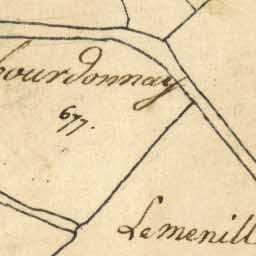 bourdonnay
677.
Lemenill